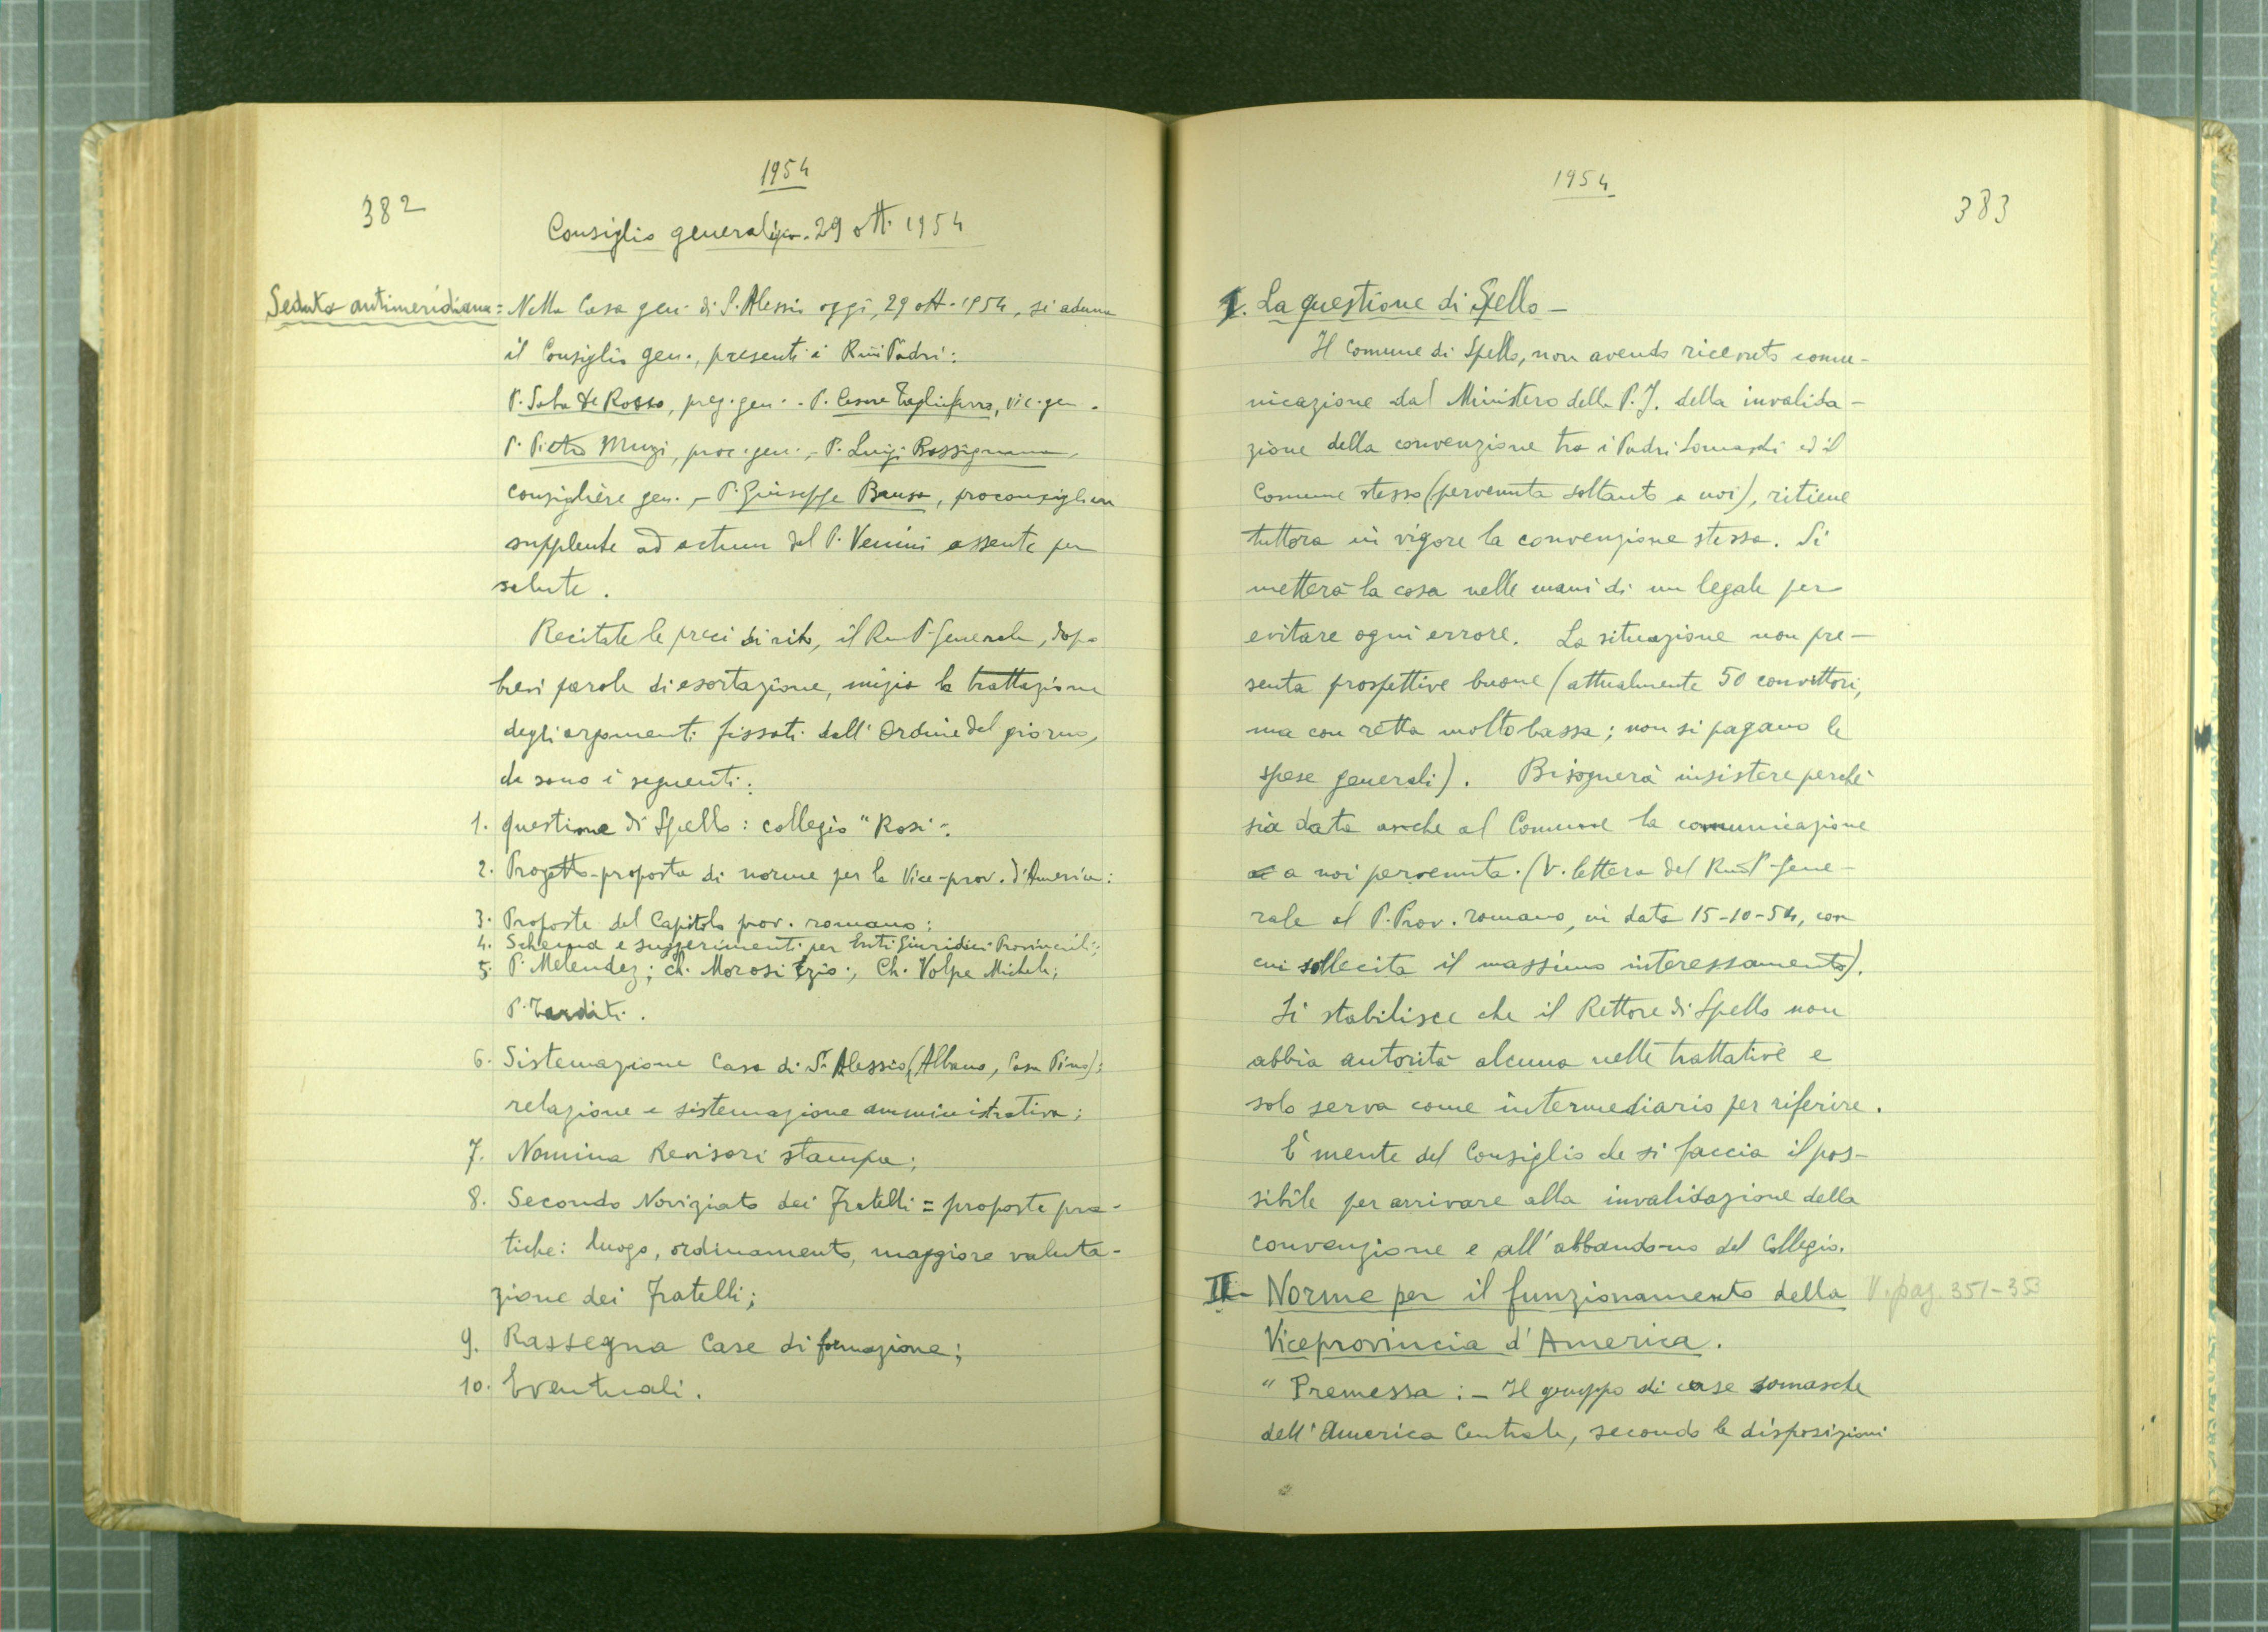 1954
382
Consiglio generalizio. 29 ott. 1954
Seduta antimeridiana: Nella Casa gen. di S. Alessio oggi, 29 ott. 1954, si aduna
il Consiglio gen., presenti i Rmi Padri:
P. Saba De Rocco, prep. gen. - P. Cesare Tagliaferro, vic. gen.
P. Pietro Muzi, proc. gen., - P. Luigi Bassignana,
consigliere gen., - P. Giuseppe Brusa, proconsigliere
supplente ad actum del P. Venini assente per
salute.
Recitate le preci di rito, il Rev. P. Generale, dopo
brevi parole di esortazione, inizia la trattazione
degli argomenti fissati dall'Ordine del giorno,
che sono i seguenti:
1. questione di Spello: collegio "Rosi".
2. Progetto-proposta di norme per la Vice-prov. d'America:
3. Proposte del Capitolo prov. romano:
4. Schema e suggerimenti per Enti Giuridici Provinciali:
5. P. Melendez; ch. Morosi Ezio; Ch. Volpe Michele;
P. Tarditi.
6. Sistemazione Casa di S. Alessio (Albano, Casa Pino):
relazione e sistemazione amministrativa;
7. Nomina Revisori stampa;
8. Secondo Noviziato dei Fratelli = proposte pra-
tiche: luogo, ordinamento, maggiore valuta-
zione dei Fratelli;
9. Rassegna Case di formazione;
10. Eventuali.
1954
383
I. La questione di Spello -
Il Comune di Spello, non avendo ricevuto comu-
nicazione dal Ministero della P.I. della invalida-
zione della convenzione tra i Padri Somaschi ed il
Comune stesso (pervenuta soltanto a noi), ritiene
tuttora in vigore la convenzione stessa. Si
metterà la cosa nelle mani di un legale per
evitare ogni errore. La situazione non pre-
senta prospettive buone (attualmente 50 convittori,
ma con retta molto bassa; non si pagano le
spese generali). Bisognerà insistere perché
sia data anche al Comune la comunicazione
a noi pervenuta. (V. lettera del Rmo P. Gene-
rale al P. Prov. romano, in data 15-10-54, con
cui sollecita il massimo interessamento).
Si stabilisce che il Rettore di Spello non
abbia autorità alcuna nelle trattative e
solo serva come intermediario per riferire.
E' mente del Consiglio che si faccia il pos-
sibile per arrivare alla invalidazione della
convenzione e all'abbandono del Collegio.
II- Norme per il funzionamento della V. pag. 351-353
Viceprovincia d'America.
"Premessa: - Il gruppo di case somasche
dell'America Centrale, secondo le disposizioni